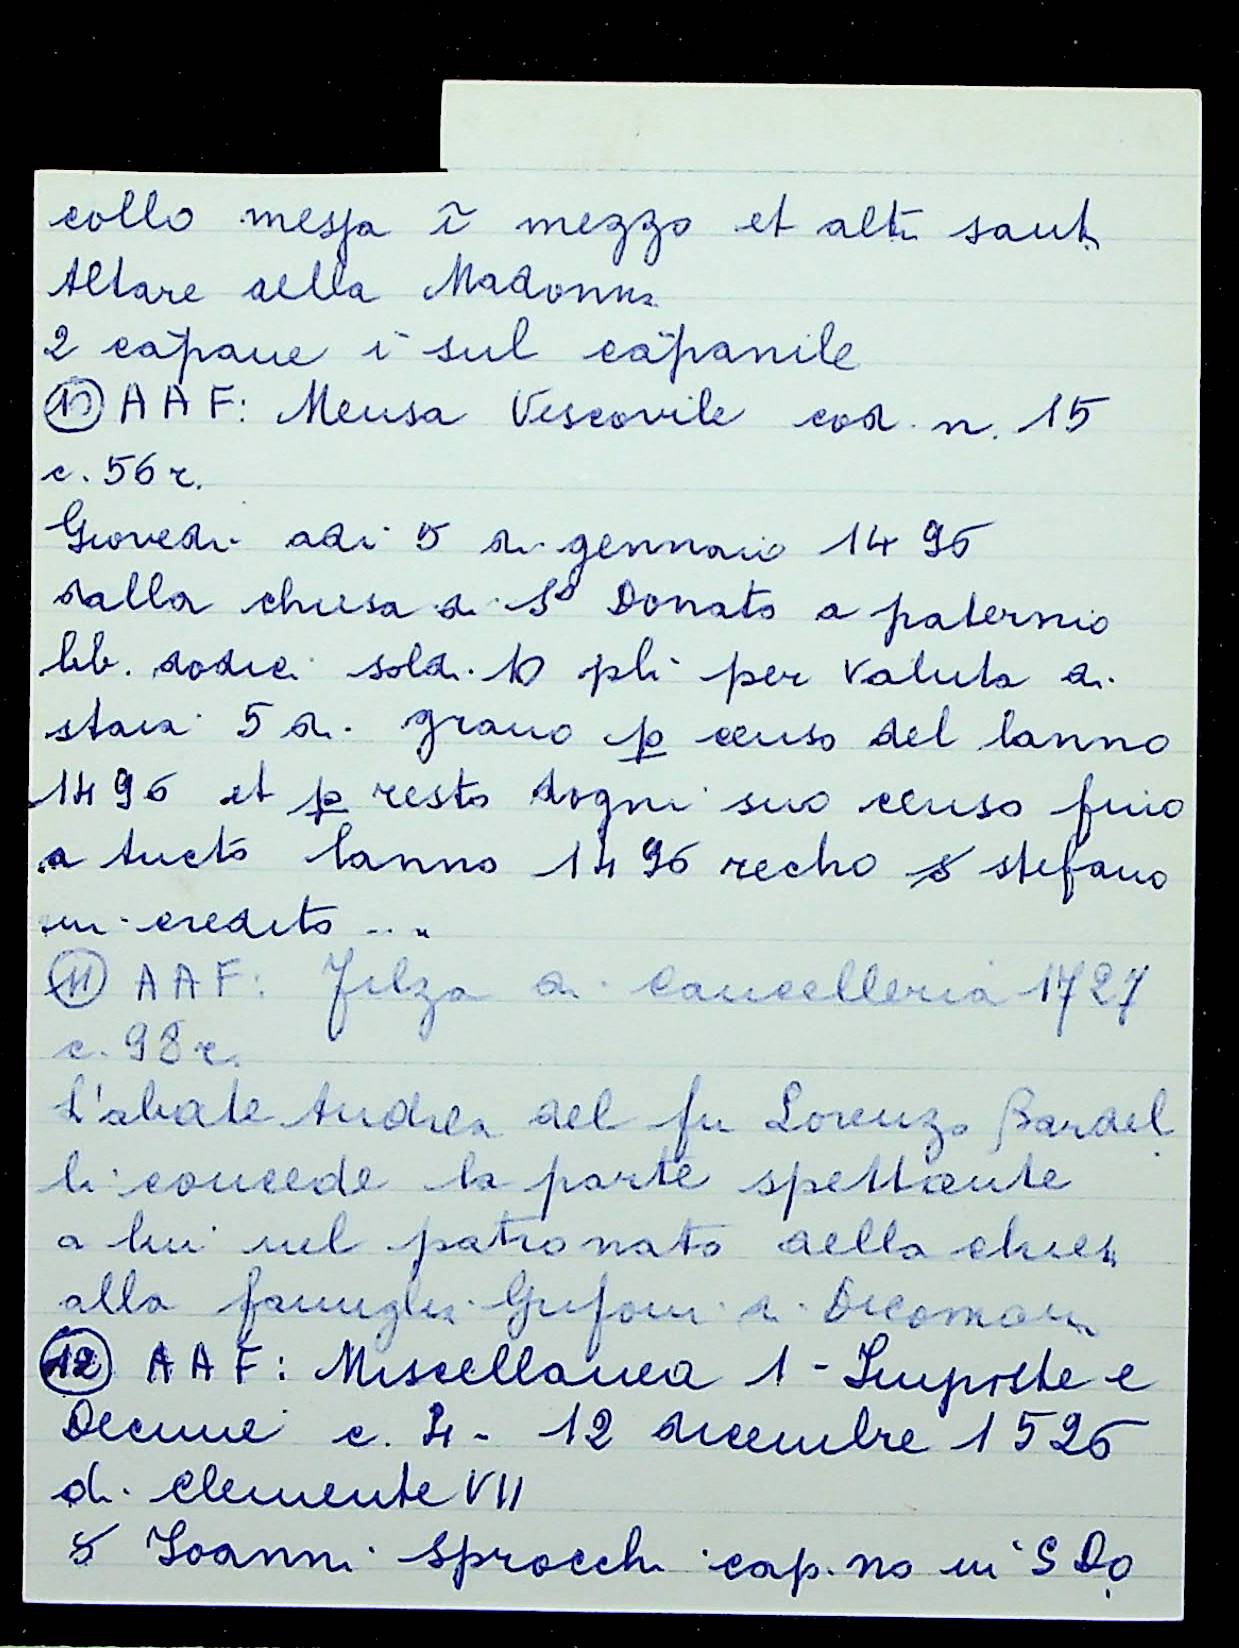 collo messa ĩ mezzo et altri santi
Altare della Madonna
2 cāpane ī sul cāpanile
10 AAF: Mensa Vescovile cod. n. 15
c. 56 r.
Giovedi adi 5 di gennaio 1496
dalla chiesa di Sº Donato a paternio
lib. dodici soldi 10 pli per valuta di
staia 5 di grano p censo del lanno
1496 et p resto dogni suo censo fino
a tucto lanno 1496 recho s stefano
in credito ...
11 AAF: Filza di Cancelleria 1727
c. 98 r.
L'abate Andrea del fu Lorenzo Bardel
li concede la parte spettante
a lui nel patronato della chiesa
alla famiglia Grifoni di Dicomano
12 AAF: Miscellanea 1 - Imposte e
Decime c. 4 - 12 dicembre 1526
di Clemente VII
s Ioanni Sprocchi cap.no in S Do